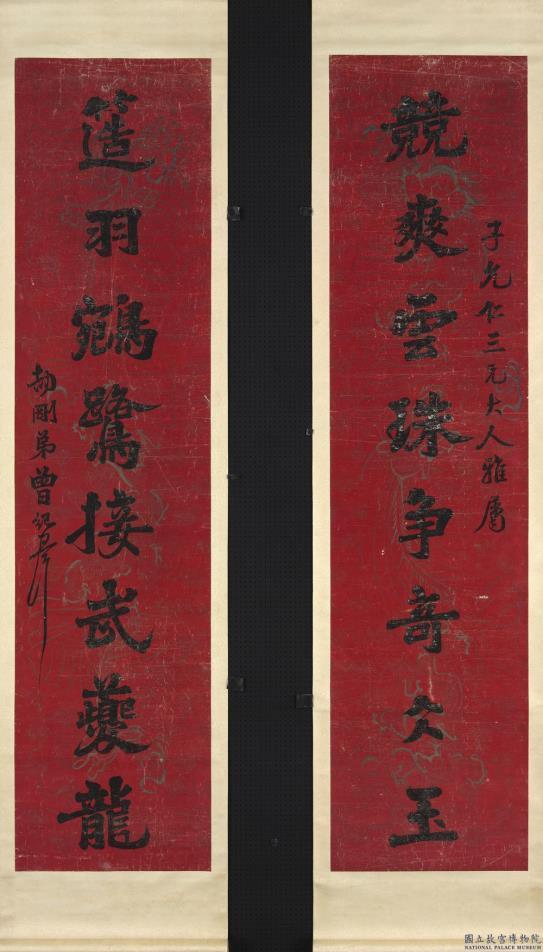 競爽雲珠争竒仌玉
子允仁三兄大人雅屬
簉羽鵷鷺接武夔龍
劼剛弟曾紀澤
國立故宮博物院
NATIONAL PALACE MUSEUM